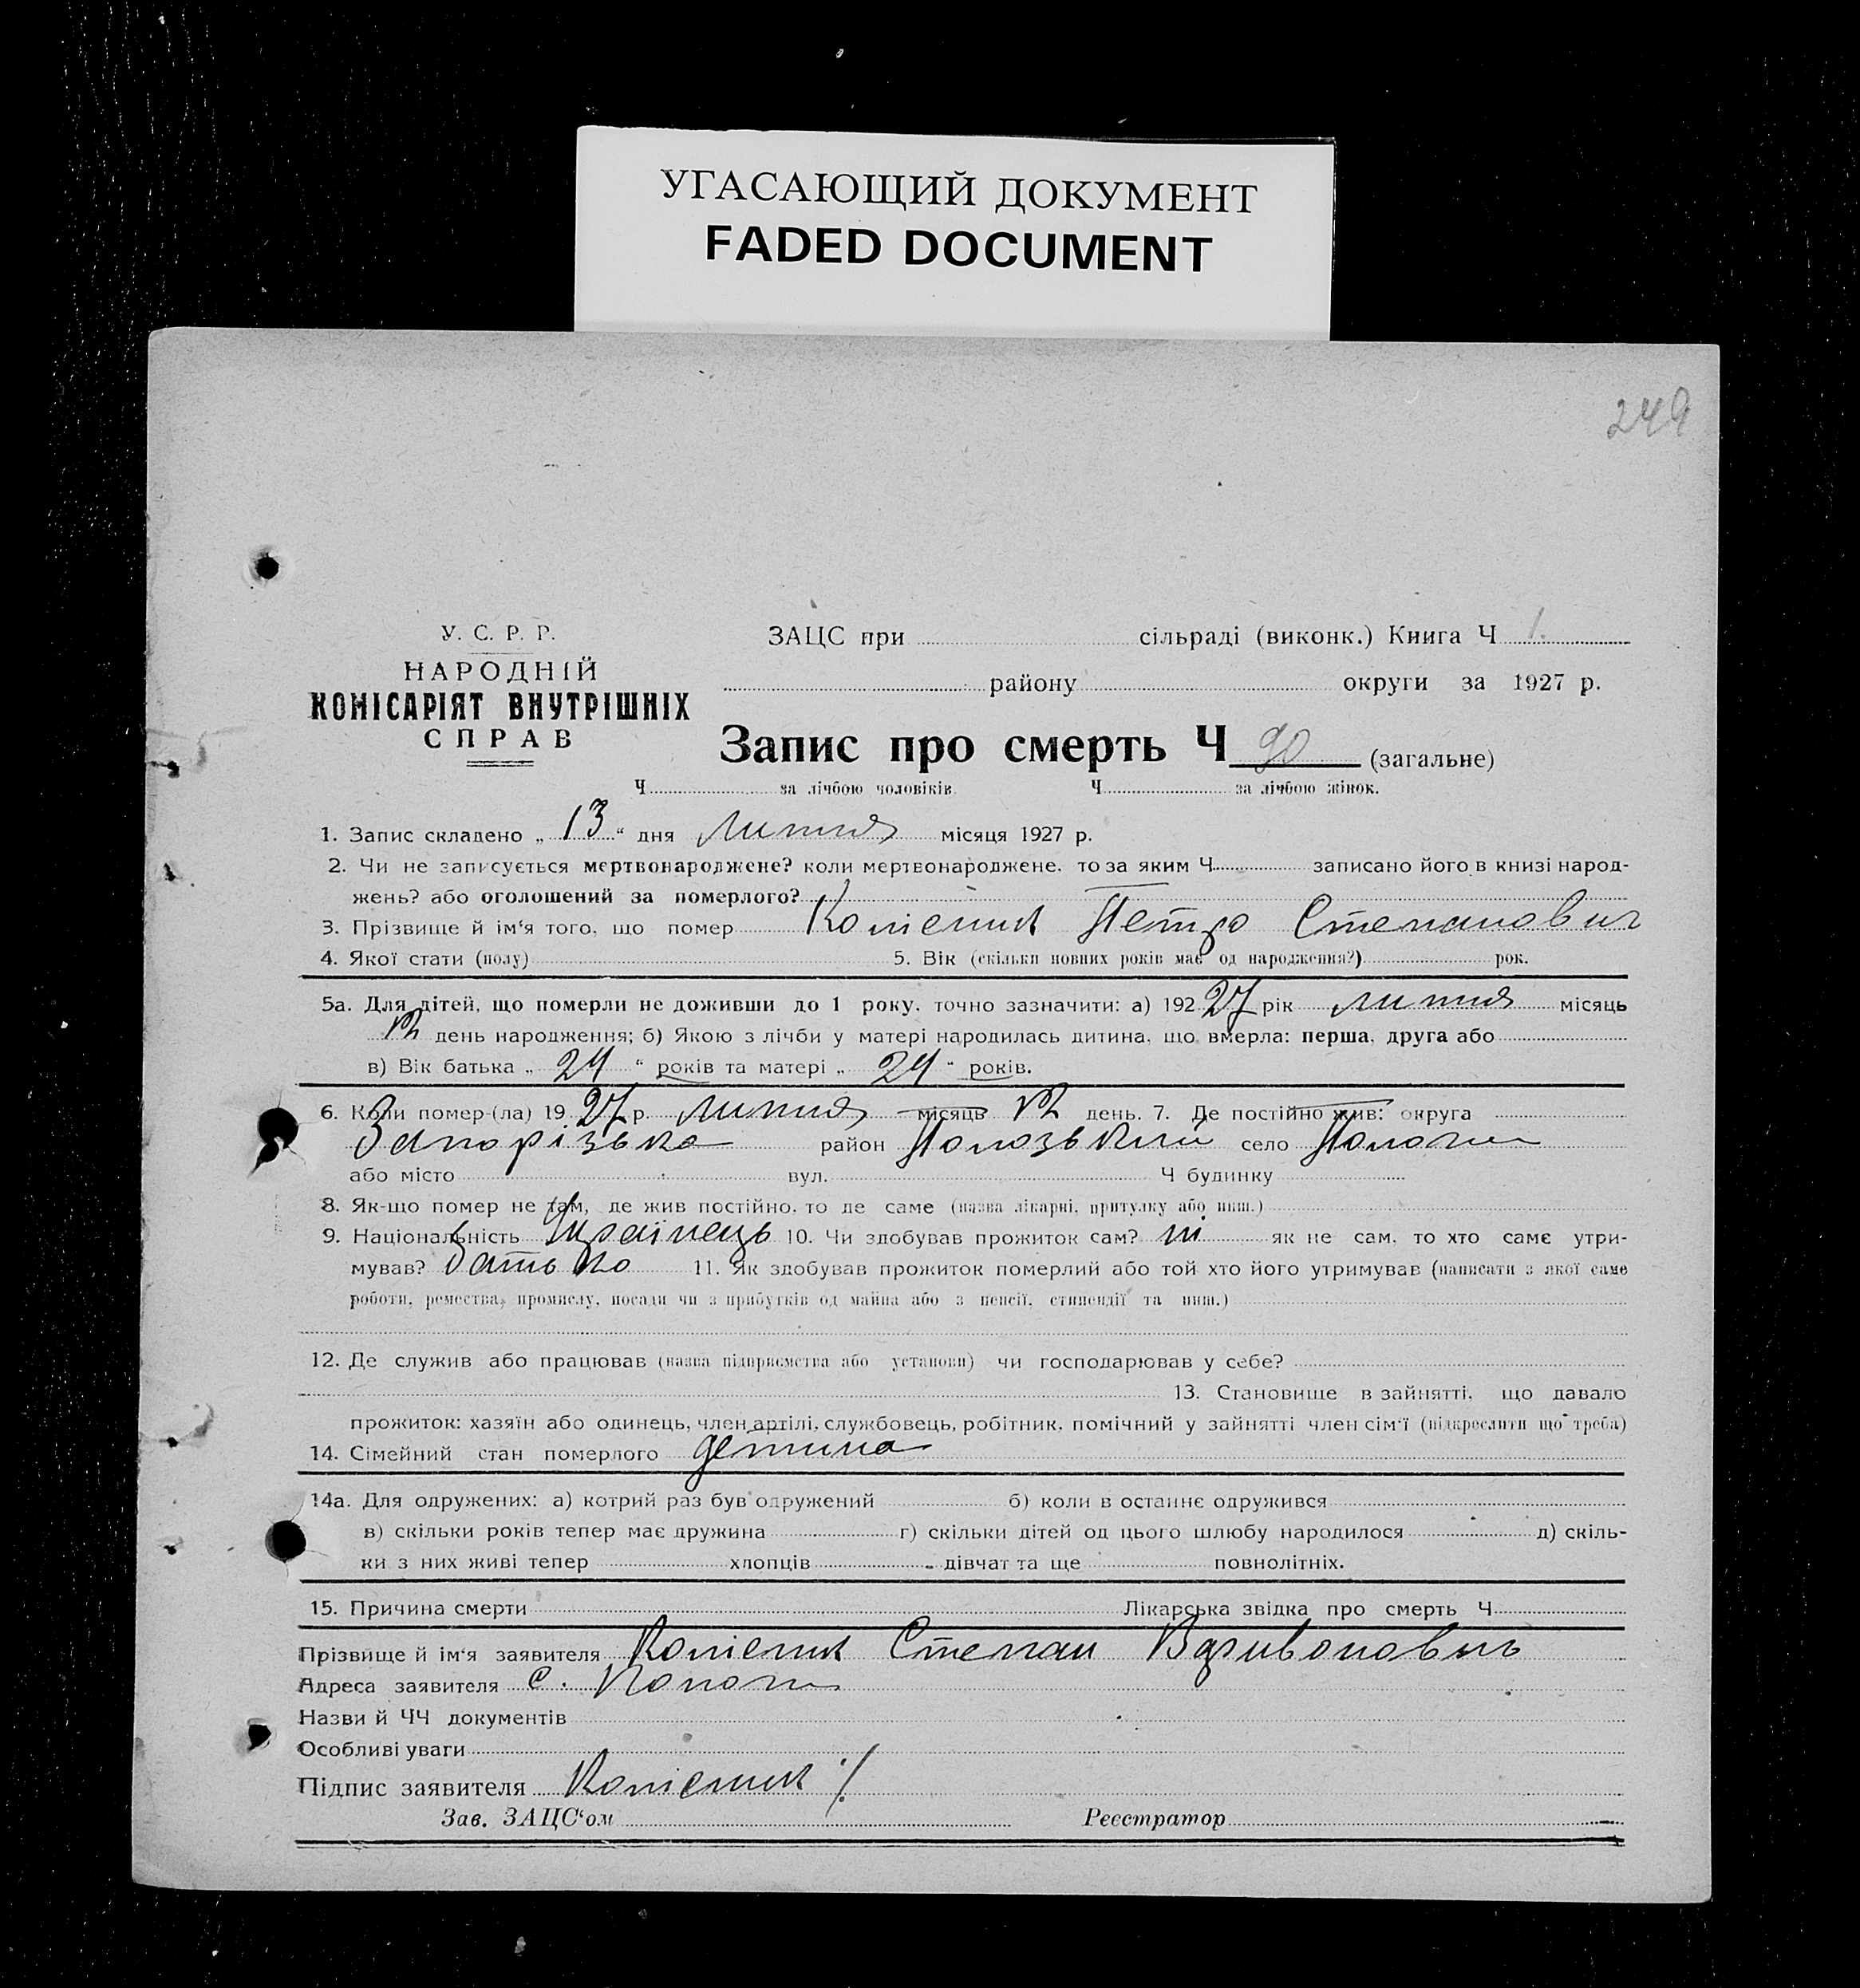 УГАСАЮЩИЙ ДОКУМЕНТ
FADED DOCUMENT
249
У. С. Р. Р.
НАРОДНІЙ
КОМІСАРІЯТ ВНУТРІШНІХ
СПРАВ
ЗАЦС при сільраді (виконк.) Книга Ч 1.
району округи за 1927 р.
Запис про смерть Ч 90 (загальне)
Ч за лічбою чоловіків Ч за лічбою жінок.
1. Запис складено „ 13 “ дня липня місяця 1927 р.
2. Чи не записується мертвонароджене? коли мертвонароджене, то за яким Ч записано його в книзі народ-
жень? або оголошений за померлого?
3. Прізвище й ім‘я того, що помер Петро Степанович
4. Якої стати (полу) 5. Вік (скільки повних років має од народження?) рок.
5а. Для дітей, що померли не доживши до 1 року, точно зазначити: а) 192 27 рік липня місяць
12 день народження; б) Якою з лічби у матері народилась дитина, що вмерла: перша, друга або
в) Вік батька „ 24 “ років та матері „ 24 “ років.
6. Коли помер-(ла) 19 27 р. липня місяць 12 день. 7. Де постійно жив: округа
Запорізька район Пологзький село Пологи
або місто вул. Ч будинку
8. Як-що помер не там, де жив постійно, то де саме (назва лікарні, притулку або инш.)
9. Національність Українець 10. Чи здобував прожиток сам? ні як не сам, то хто саме утри-
мував? батько 11. Як здобував прожиток померлий або той хто його утримував (написати з якої саме
роботи, ремества, промислу, посади чи з прибутків од майна або з пенсії, стипендії та инш.)
12. Де служив або працював (назва підприємства або установи) чи господарював у себе?
13. Становище в зайнятті, що давало
прожиток: хазяїн або одинець, член артілі, службовець, робітник, помічний у зайнятті член сім‘ї (підкреслити що треба)
14. Сімейний стан померлого детина
14а. Для одружених: а) котрий раз був одружений б) коли в останнє одружився
в) скільки років тепер має дружина г) скільки дітей од цього шлюбу народилося д) скіль-
ки з них живі тепер хлопців дівчат та ще повнолітніх.
15. Причина смерти Лікарська звідка про смерть Ч
Прізвище й ім‘я заявителя Степан
Адреса заявителя с. Пологи
Назви й ЧЧ документів
Особливі уваги
Підпис заявителя
Зав. ЗАЦС‘ом Реєстратор